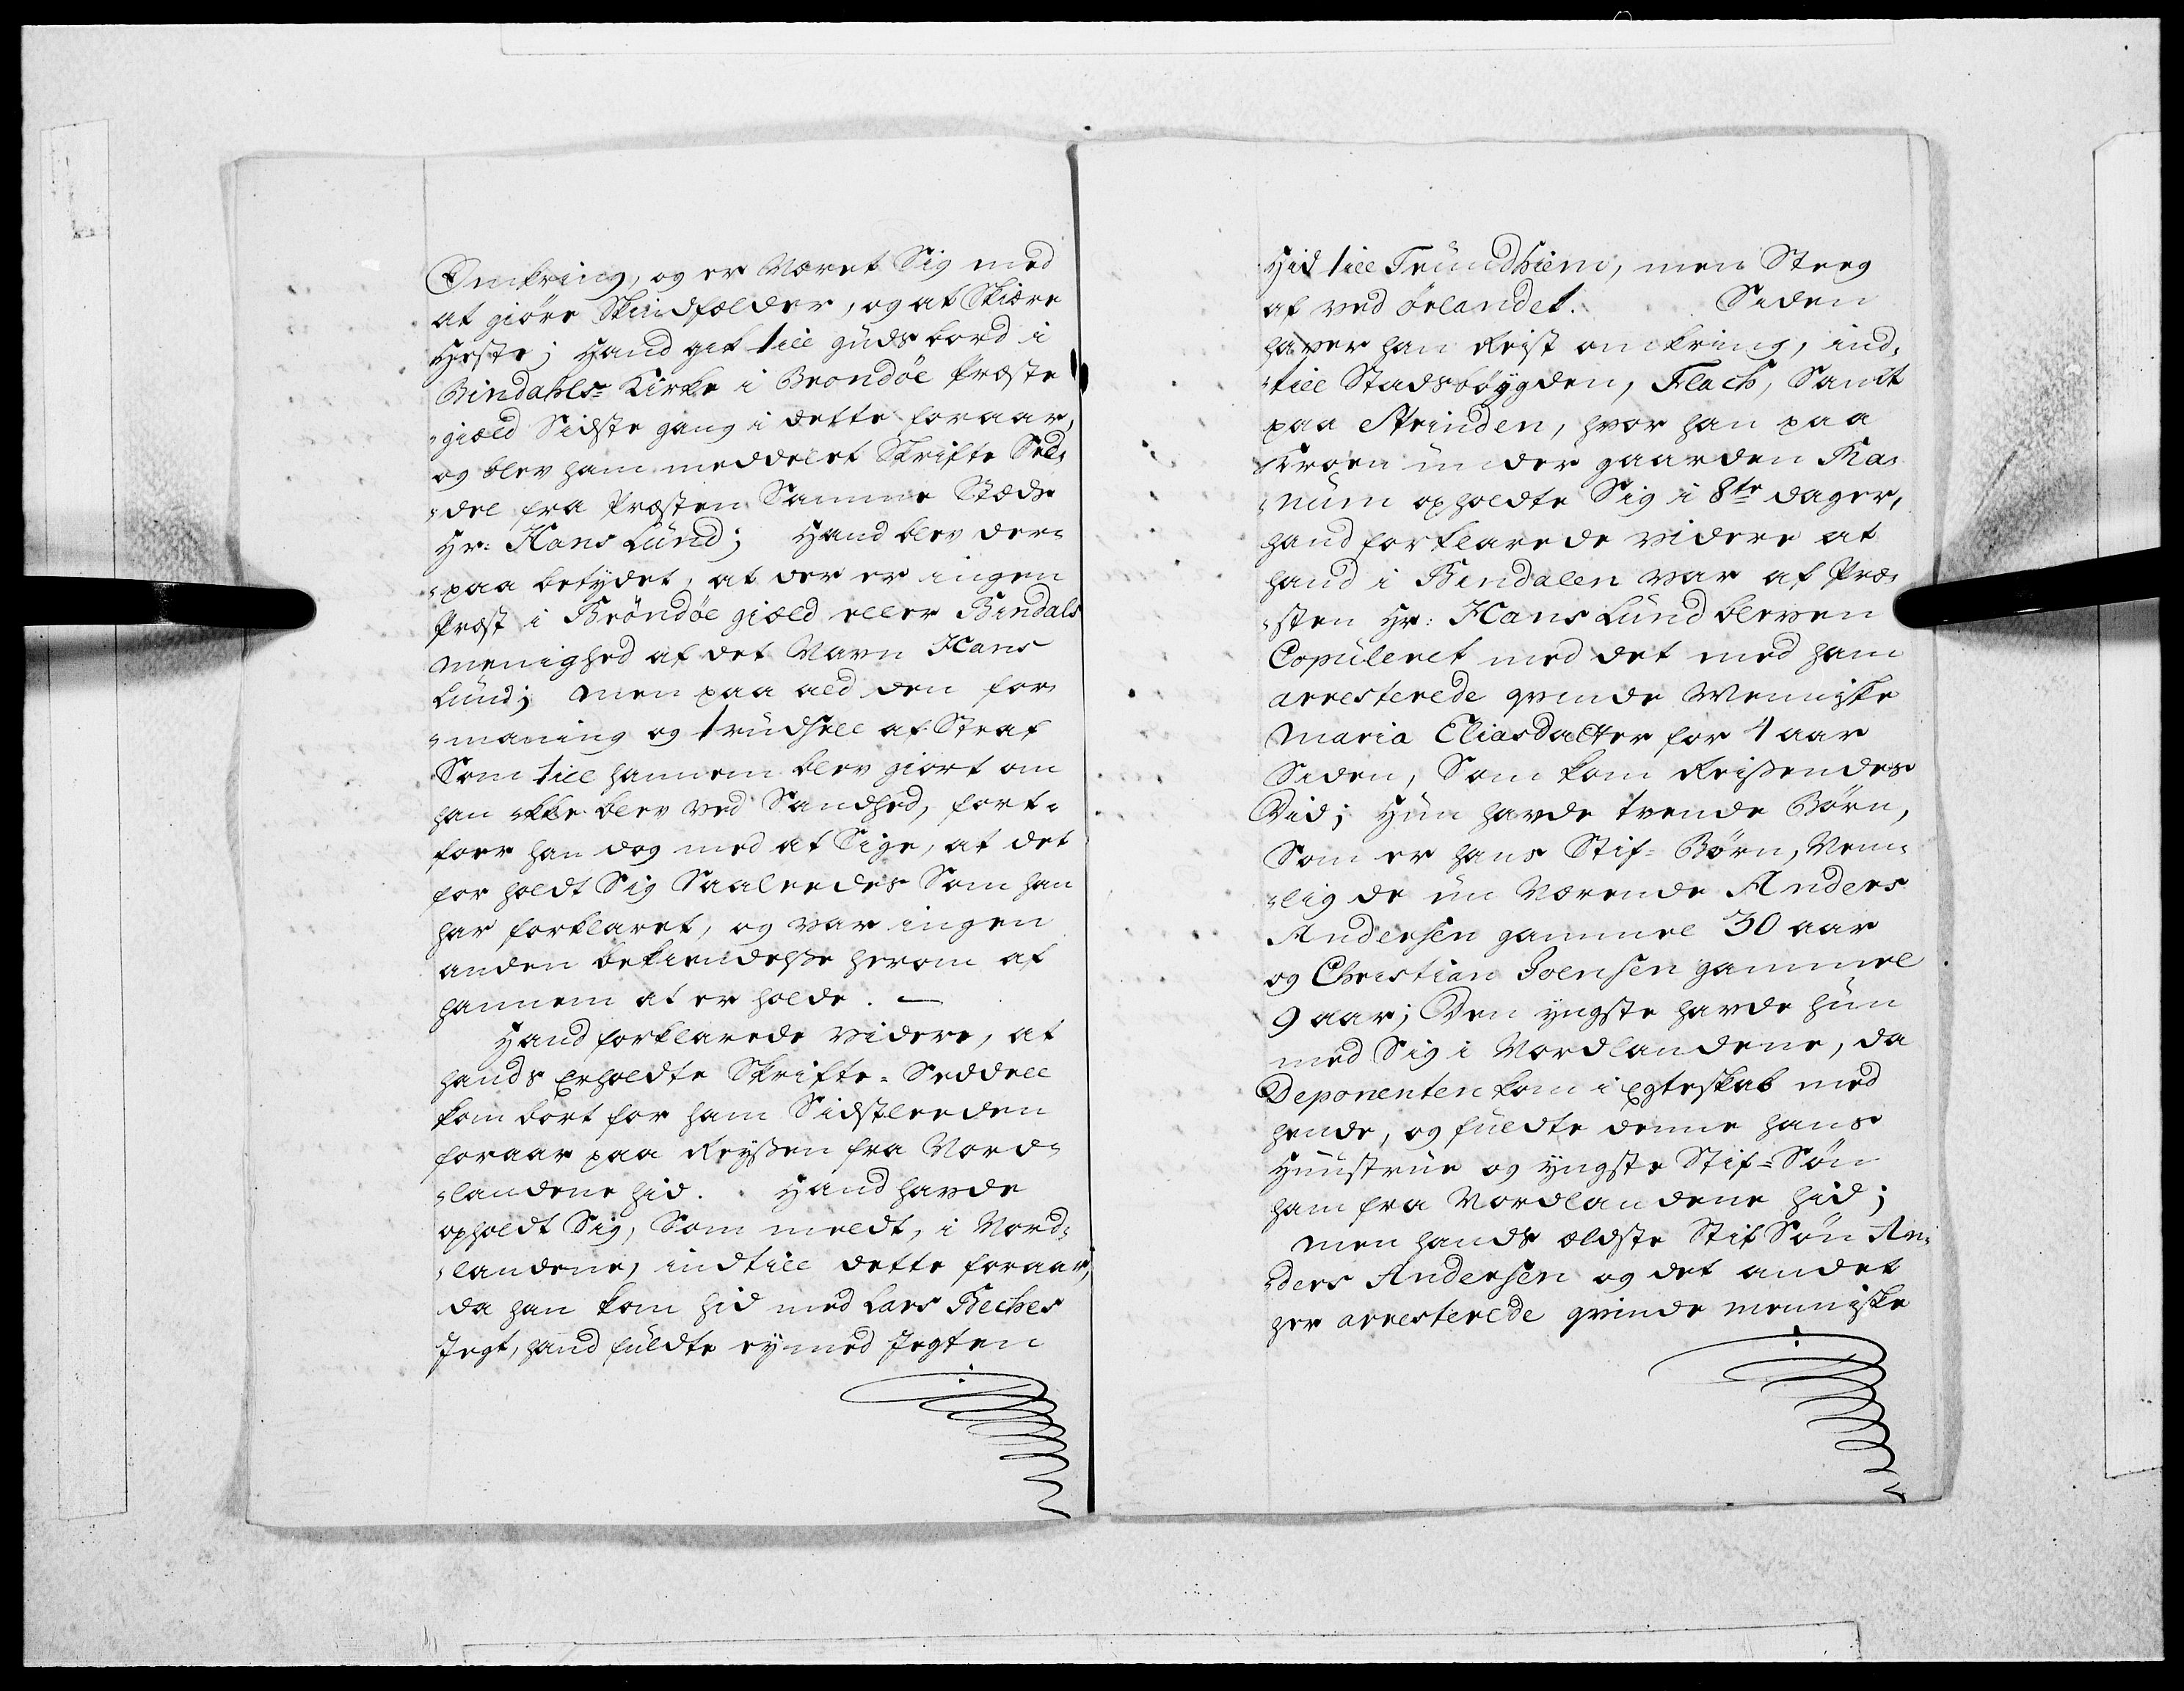 Omkring, og er Næret Sig med
at giöre Skindfælder, og at Skiære
Heste; Hand gik till Guds bord i
Bindahls- Kirke i Brondöe Præste
-giæld Sidste gang i dette foraar,
og blev ham meddelet Skrifte Sed-
-del fra Præsten Samme Stæds
Hr: Hans Lund; Hand blev der-
-paa betydet, at der er ingen
Præst i Bröndöe giæld eller Bindals
Menighed af det Navn Hans
Lund; Men paa ald den for-
-maning og trudsell af Straf
Som till hannem blev giort om
han ikke blev ved Sandhed, fort-
foer han dog med at Sige, at det
for holdt Sig Saaleedes Som han
har forklaret, og var ingen
anden bekiendelsse herom af
hannem at er holde. —
Hand forklarede videre, at
hands Erholdte Skrifte- Seddell
kom bort for ham Sidstleeden
foraar paa Reyssen fra Nord-
-landene hid. Hand havde
opholdt Sig, Som meldt, i Nord-
-landene, indtill dette foraar,
da han kom hid med Lars Beches
Jegt, hand fuldte ey med Jegten
Hid till Trundhiem, men Steeg
af ved örlandet. Siden
haver han Reist omkring, ind-
-till Stadsböygden, Flach, Samt
paa Strinden, hvor han paa
Kroen under gaarden Ra-
-num opholdte Sig i 8te dager,
hand forklarede videre at
hand i Bindalen var af Præ-
-sten Hr: Hans Lund bleven
Copuleret med det med ham
arresterede qvinde Menniske
Maria Eliasdatter for 4 aar
Siden, Som kom Reissendes
Did; Hun havde trende Börn,
Som er hans Stif- Börn, Nem-
-lig de nu Værende Anders
Andersen gammel 30 aar
og Christian Joensen gammel
9 aar; Den yngste havde hun
med Sig i Nordlandene, da
Deponenten kom i Egteskab med
hende, og fuldte denne hans
Huustrue og yngste Stif-Sön
ham fra Nordlandene hid;
Men hands ældste Stif Sön An-
-ders Andersen og det andet
her arresterede qvinde menniske